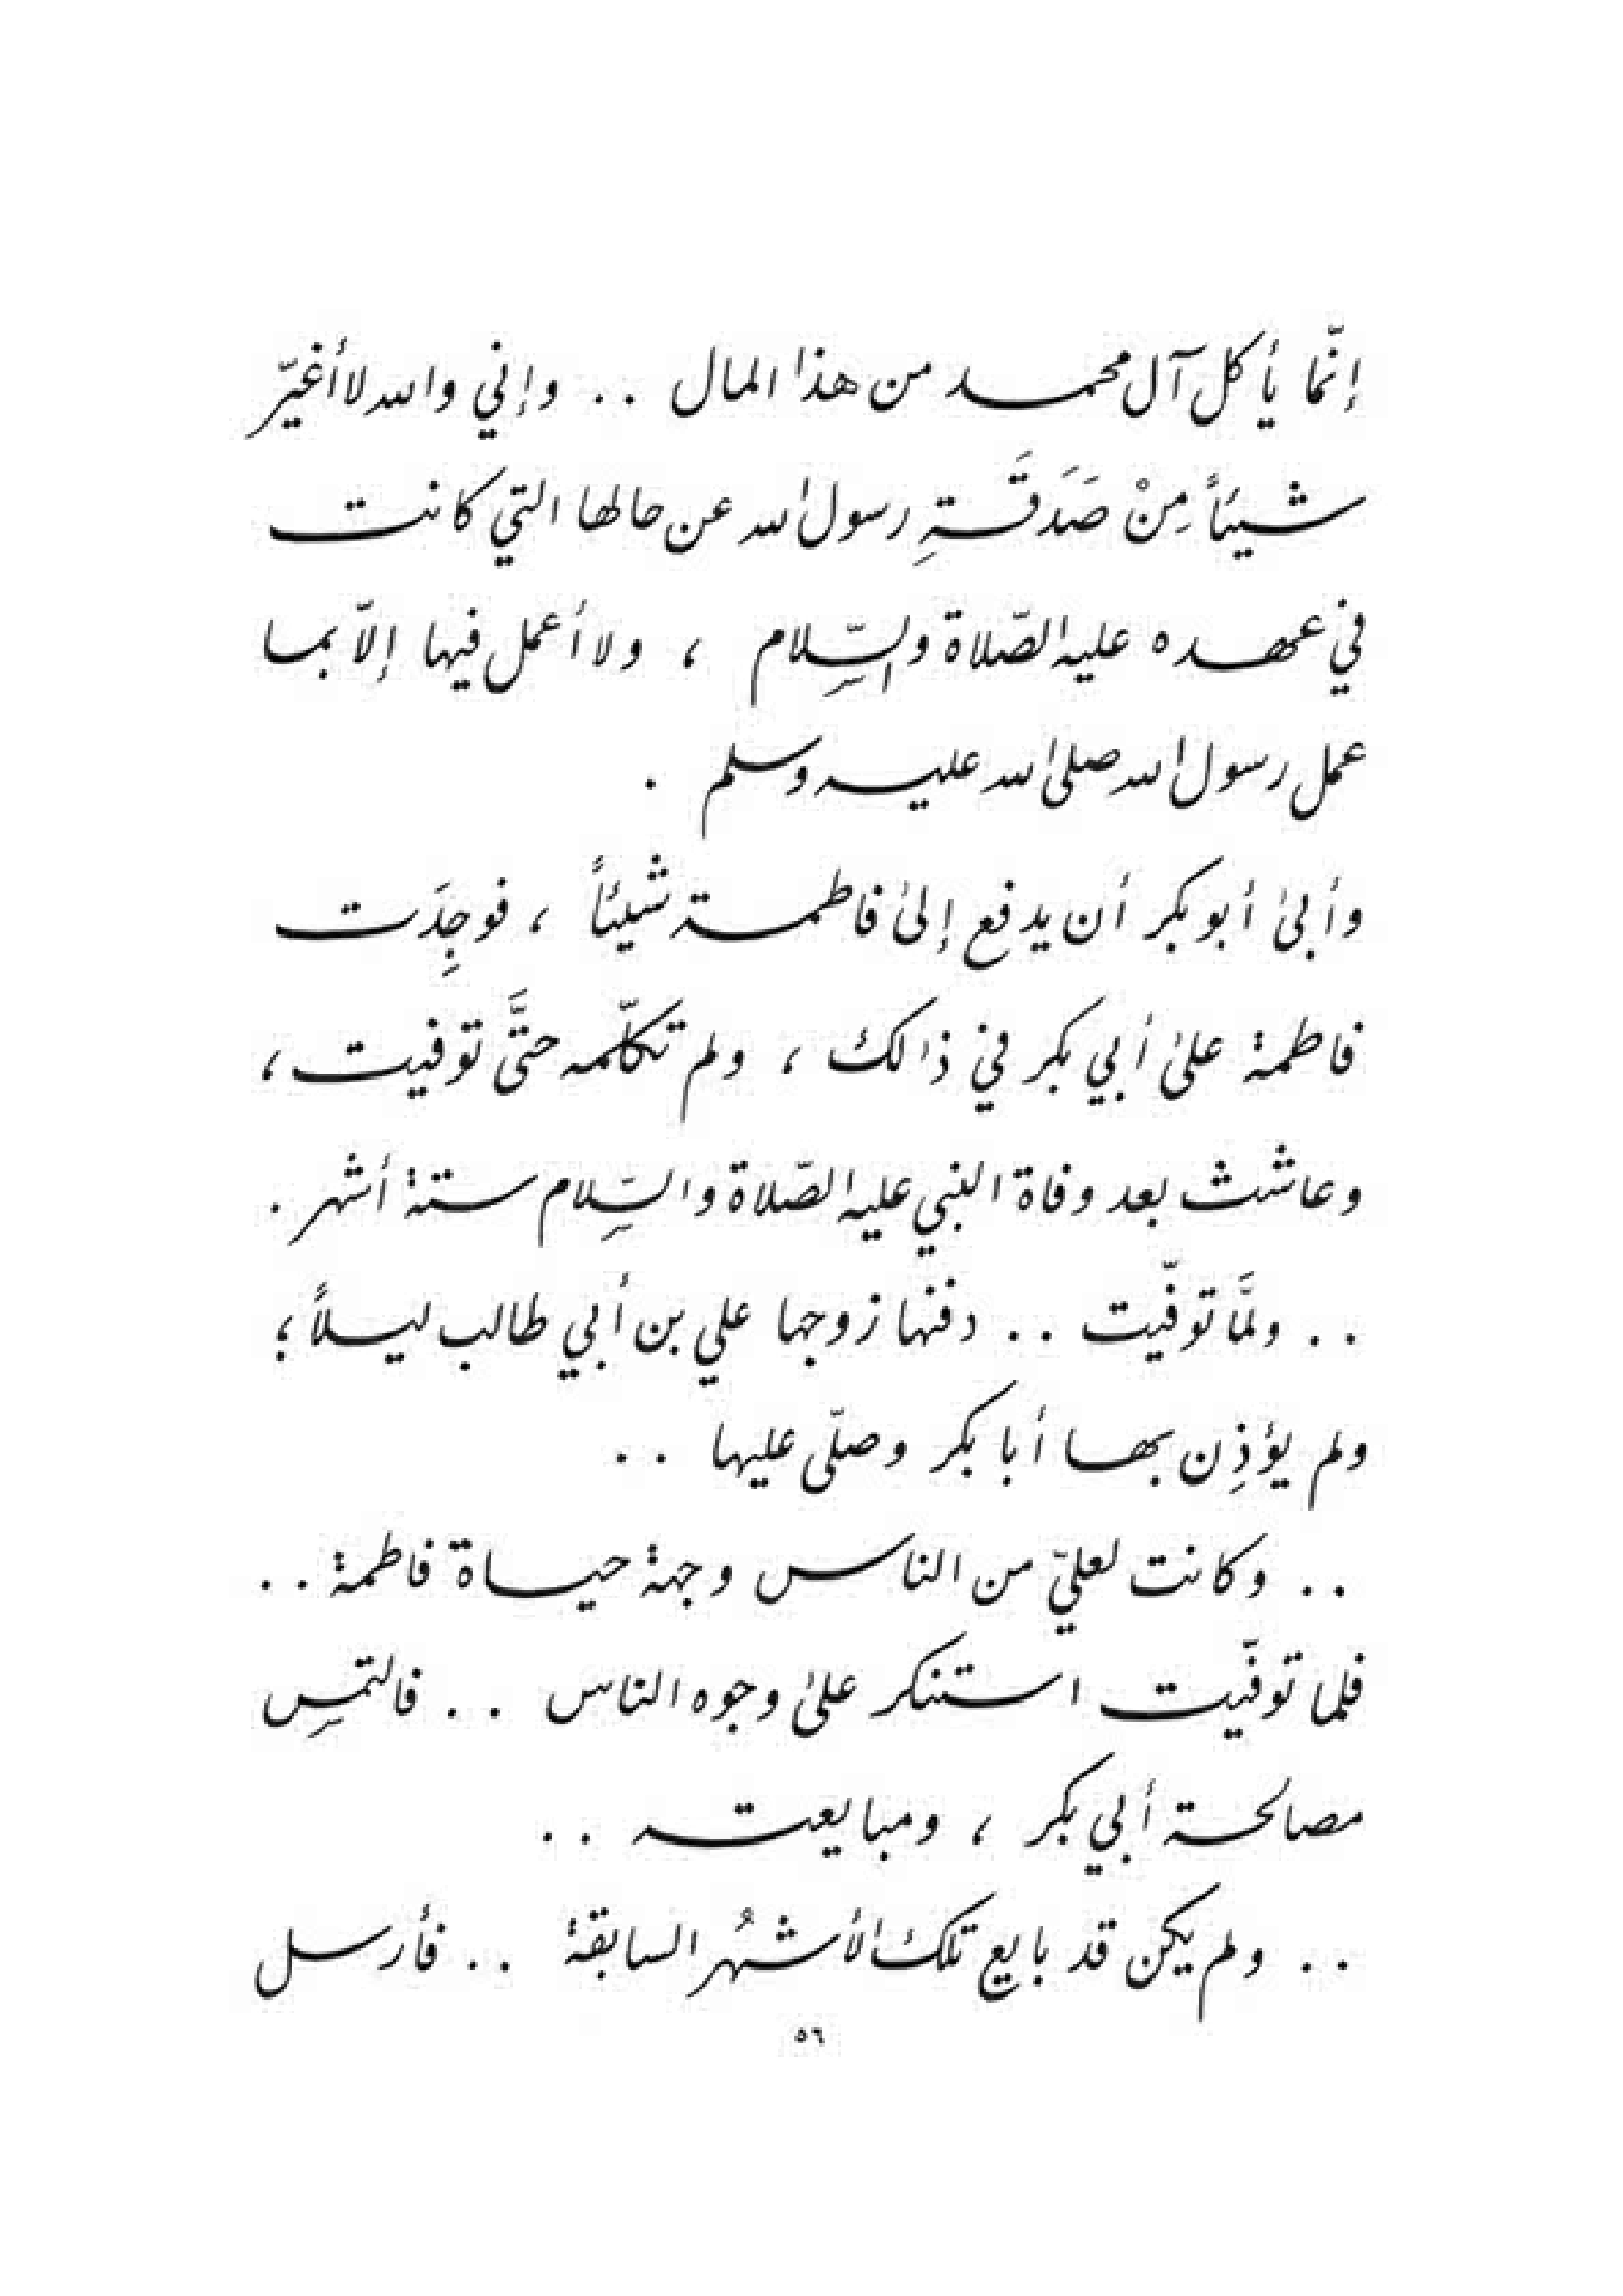 إنّما يأكل آل محمد من هذا المال .. وإني والله لا أغيّر
شيئاً مِنْ صَدَقَةِ رسول الله عن حالها التي كانت
في عهده عليه الصّلاة والسّلام ، ولا أعمل فيها إلاّ بما
عمل رسول الله صلى الله عليه وسلم .
وأبىٰ أبو بكر أن يدفع إلىٰ فاطمة شيئاً ، فوجِدَت
فاطمة علىٰ أبي بكر في ذٰلك ، ولم تكلّمه حتَّى توفيت ،
وعاشت بعد وفاة النبي عليه الصّلاة والسّلام ستة أشهر .
.. ولمَّا توفّيت .. دفنها زوجها علي بن أبي طالب ليلاً ؛
ولم يؤذِن بها أبا بكر وصلّى عليها ..
.. وكانت لعليّ من الناس وجهة حياة فاطمة ..
فلما توفّيت استنكر علىٰ وجوه الناس .. فالتمسِ
مصالحة أبي بكر ، ومبايعته ..
.. ولم يكن قد بايع تلك الأشهُر السابقة .. فأرسل
٥٦